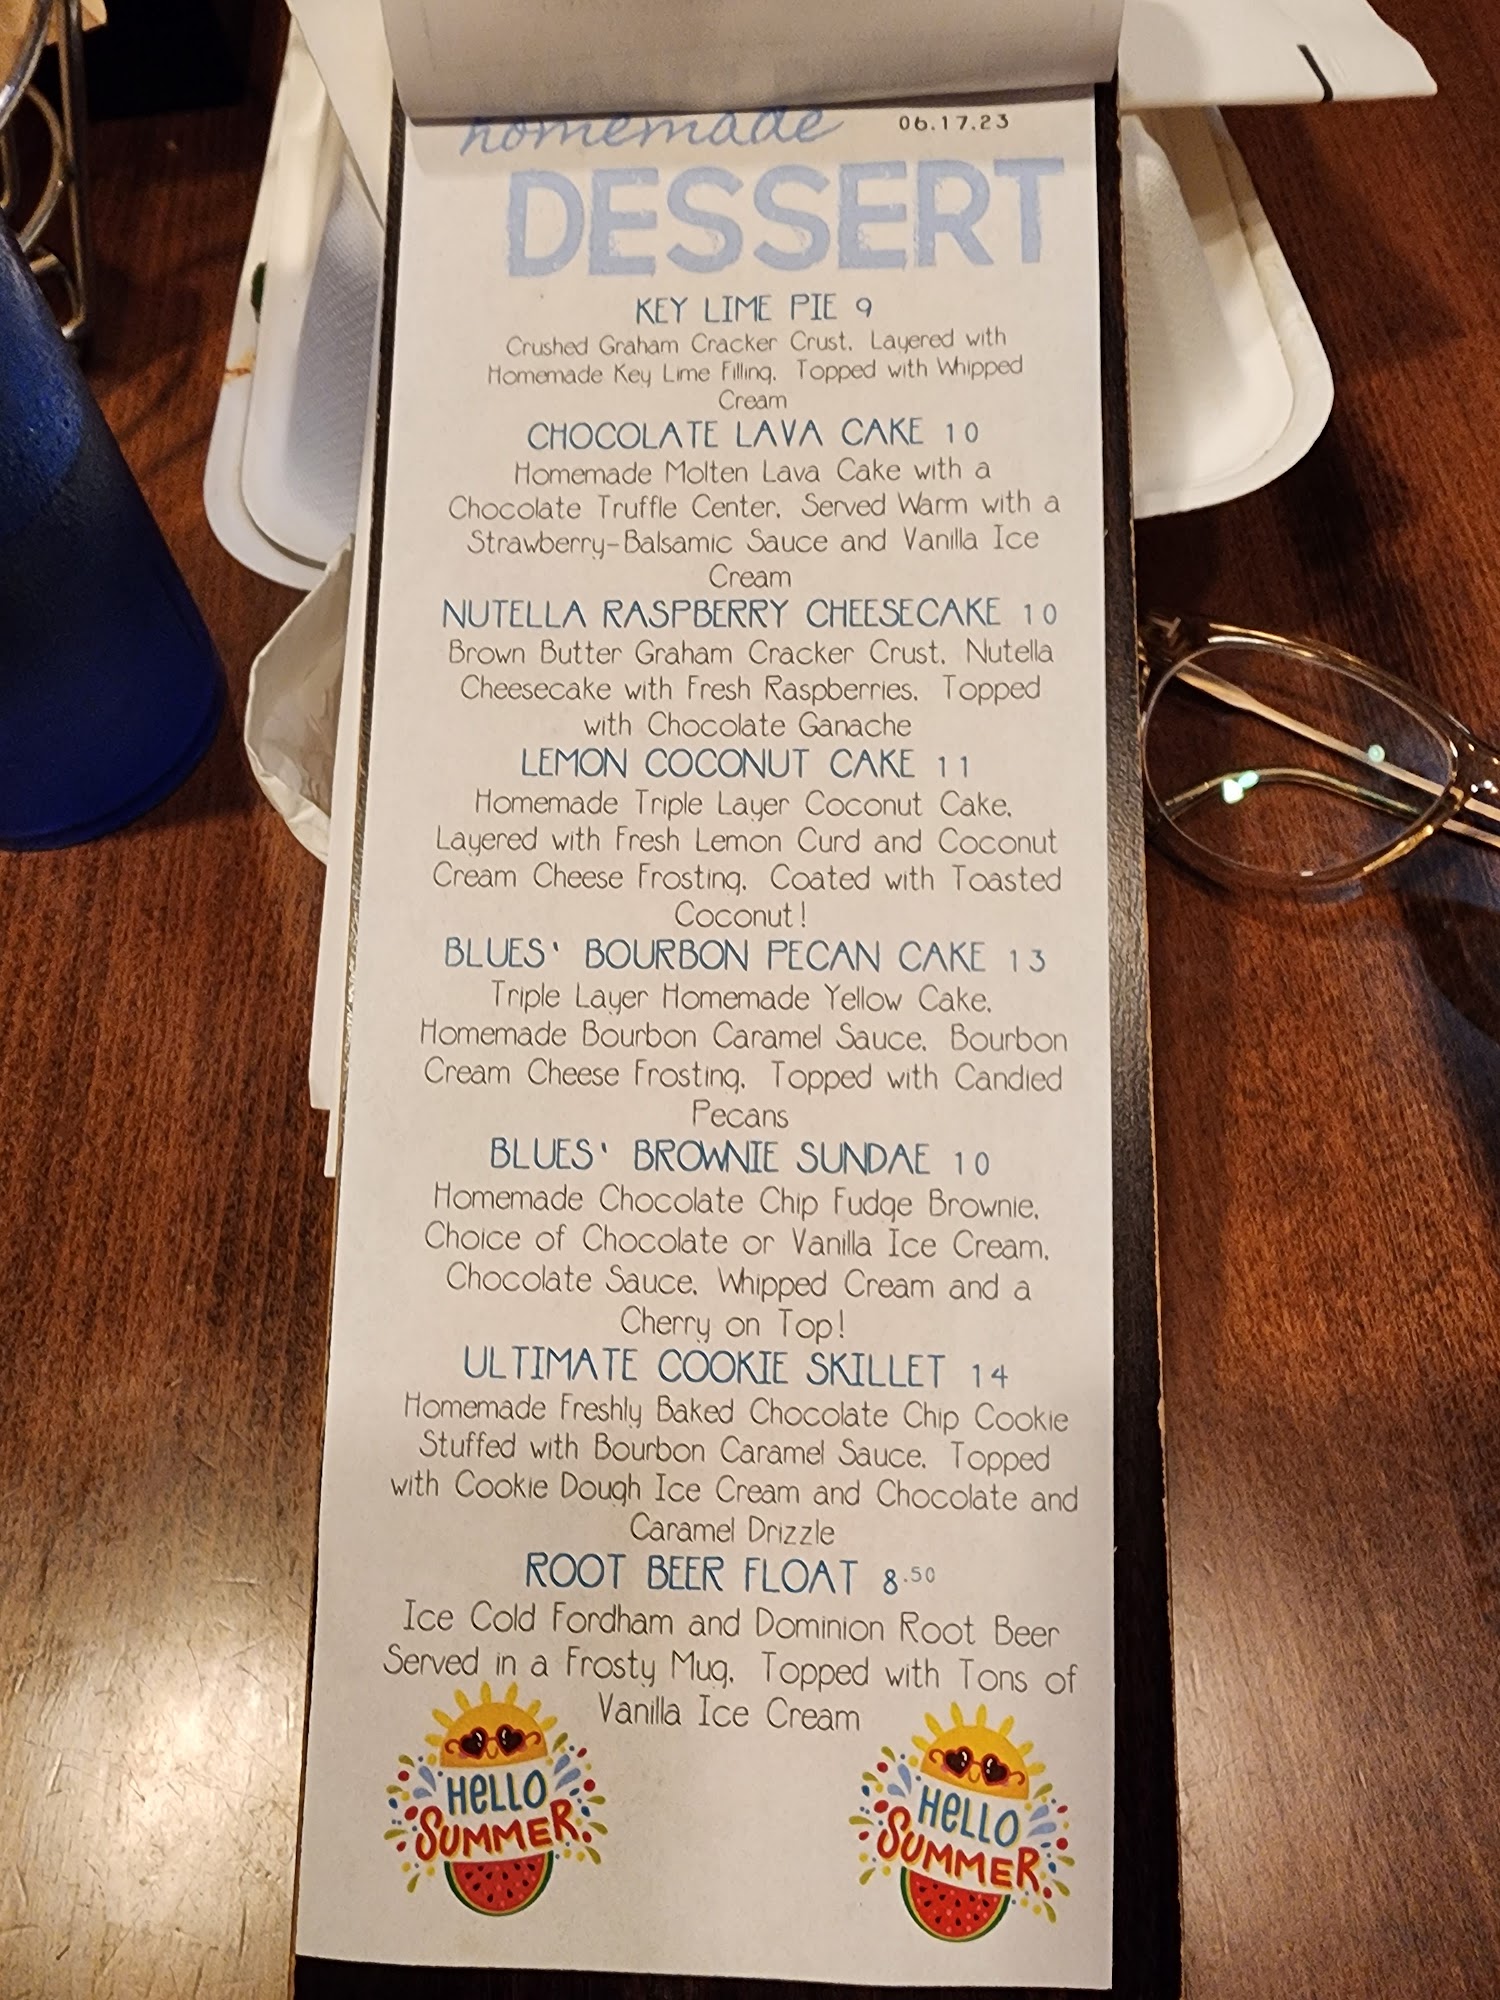 homemade 06.17.23
DESSERT
KEY LIME PIE 9
Crushed Graham Cracker Crust, Layered with
Homemade Key Lime Filling, Topped with Whipped
Cream
CHOCOLATE LAVA CAKE 10
Homemade Molten Lava Cake with a
Chocolate Truffle Center, Served Warm with a
Strawberry-Balsamic Sauce and Vanilla Ice
Cream
NUTELLA RASPBERRY CHEESECAKE 10
Brown Butter Graham Cracker Crust, Nutella
Cheesecake with Fresh Raspberries, Topped
with Chocolate Ganache
LEMON COCONUT CAKE 11
Homemade Triple Layer Coconut Cake,
Layered with Fresh Lemon Curd and Coconut
Cream Cheese Frosting, Coated with Toasted
Coconut!
BLUES' BOURBON PECAN CAKE 13
Triple Layer Homemade Yellow Cake,
Homemade Bourbon Caramel Sauce, Bourbon
Cream Cheese Frosting, Topped with Candied
Pecans
BLUES' BROWNIE SUNDAE 10
Homemade Chocolate Chip Fudge Brownie,
Choice of Chocolate or Vanilla Ice Cream,
Chocolate Sauce, Whipped Cream and a
Cherry on Top!
ULTIMATE COOKIE SKILLET 14
Homemade Freshly Baked Chocolate Chip Cookie
Stuffed with Bourbon Caramel Sauce, Topped
with Cookie Dough Ice Cream and Chocolate and
Caramel Drizzle
ROOT BEER FLOAT 8.50
Ice Cold Fordham and Dominion Root Beer
Served in a Frosty Mug, Topped with Tons of
Vanilla Ice Cream
HELLO
SUMMER
HELLO
SUMMER